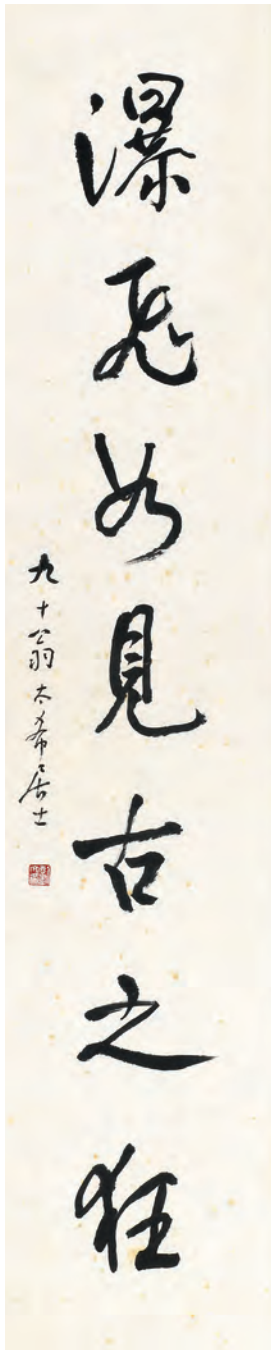 瀑飛如見古之狂
九十翁太希居士